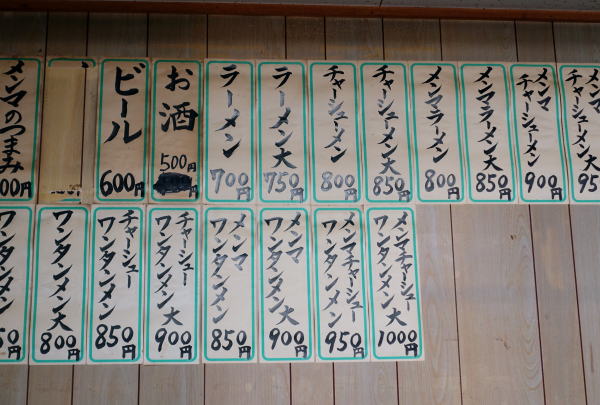 メンマのつまみ
00円
ビール
600円
お酒
500円
ラーメン
700円
ラーメン大
750円
チャーシューメン
800円
チャーシューメン大
850円
メンマラーメン
800円
メンマラーメン大
850円
メンマ
チャーシューメン
900円
メンマ
チャーシューメン大
95
ワンタンメン
50円
ワンタンメン大
800円
チャーシュー
ワンタンメン
850円
チャーシュー
ワンタンメン大
900円
メンマ
ワンタンメン
850円
メンマ
ワンタンメン大
900円
メンマチャーシュー
ワンタンメン
950円
メンマチャーシュー
ワンタンメン大
1000円